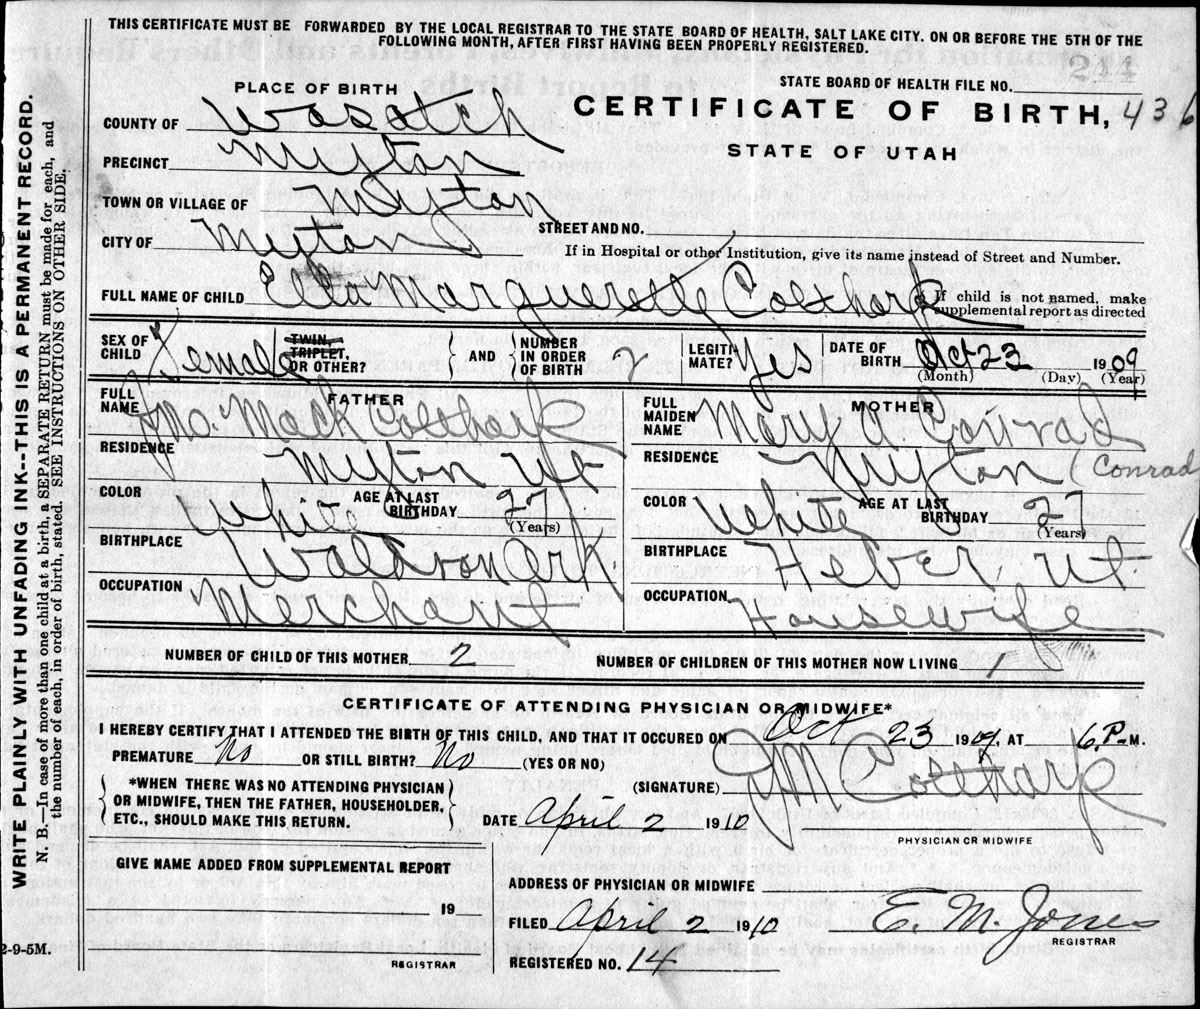 THIS CERTIFICATE MUST BE FORWARDED BY THE LOCAL REGISTRAR TO THE STATE BOARD OF HEALTH, SALT LAKE CITY. ON OR BEFORE THE 5TH OF THE
FOLLOWING MONTH, AFTER FIRST HAVING BEEN PROPERLY REGISTERED.
244
STATE BOARD OF HEALTH FILE NO.
PLACE OF BIRTH
CERTIFICATE OF BIRTH, 436
STATE OF UTAH
COUNTY OF Wasatch
PRECINCT Myton
TOWN OR VILLAGE OF Myton
STREET AND NO.
CITY OF Myton
If in Hospital or other Institution, give its name instead of Street and Number.
FULL NAME OF CHILD Ella Marguerette Coltharp
If child is not named, make supplemental report as directed
SEX OF CHILD Female
TWIN, TRIPLET, OR OTHER?
AND
NUMBER IN ORDER OF BIRTH 2
LEGITIMATE? Yes
DATE OF BIRTH Oct 23 1909
(Month) (Day) (Year)
FATHER
FULL NAME Jno. Mack Coltharp
RESIDENCE Myton Ut
COLOR White
AGE AT LAST BIRTHDAY 27 (Years)
BIRTHPLACE Waldron Ark
OCCUPATION Merchant
MOTHER
FULL MAIDEN NAME Mary A Conrad
RESIDENCE Myton (Conrad
COLOR White
AGE AT LAST BIRTHDAY 27 (Years)
BIRTHPLACE Heber Ut
OCCUPATION Housewife
NUMBER OF CHILD OF THIS MOTHER 2
NUMBER OF CHILDREN OF THIS MOTHER NOW LIVING 1
CERTIFICATE OF ATTENDING PHYSICIAN OR MIDWIFE*
I HEREBY CERTIFY THAT I ATTENDED THE BIRTH OF THIS CHILD, AND THAT IT OCCURED ON Oct 23 1909, AT 6 P-M.
PREMATURE No OR STILL BIRTH? No (YES OR NO)
*WHEN THERE WAS NO ATTENDING PHYSICIAN
OR MIDWIFE, THEN THE FATHER, HOUSEHOLDER,
ETC., SHOULD MAKE THIS RETURN.
(SIGNATURE) JM Coltharp
DATE April 2 1910
PHYSICIAN OR MIDWIFE
GIVE NAME ADDED FROM SUPPLEMENTAL REPORT
19
REGISTRAR
ADDRESS OF PHYSICIAN OR MIDWIFE
FILED April 2 1910
E. M. Jones
REGISTRAR
REGISTERED NO. 14
2-9-5M.
WRITE PLAINLY WITH UNFADING INK--THIS IS A PERMANENT RECORD.
N. B.—In case of more than one child at a birth, a SEPARATE RETURN must be made for each, and
the number of each, in order of birth, stated. SEE INSTRUCTIONS ON OTHER SIDE.